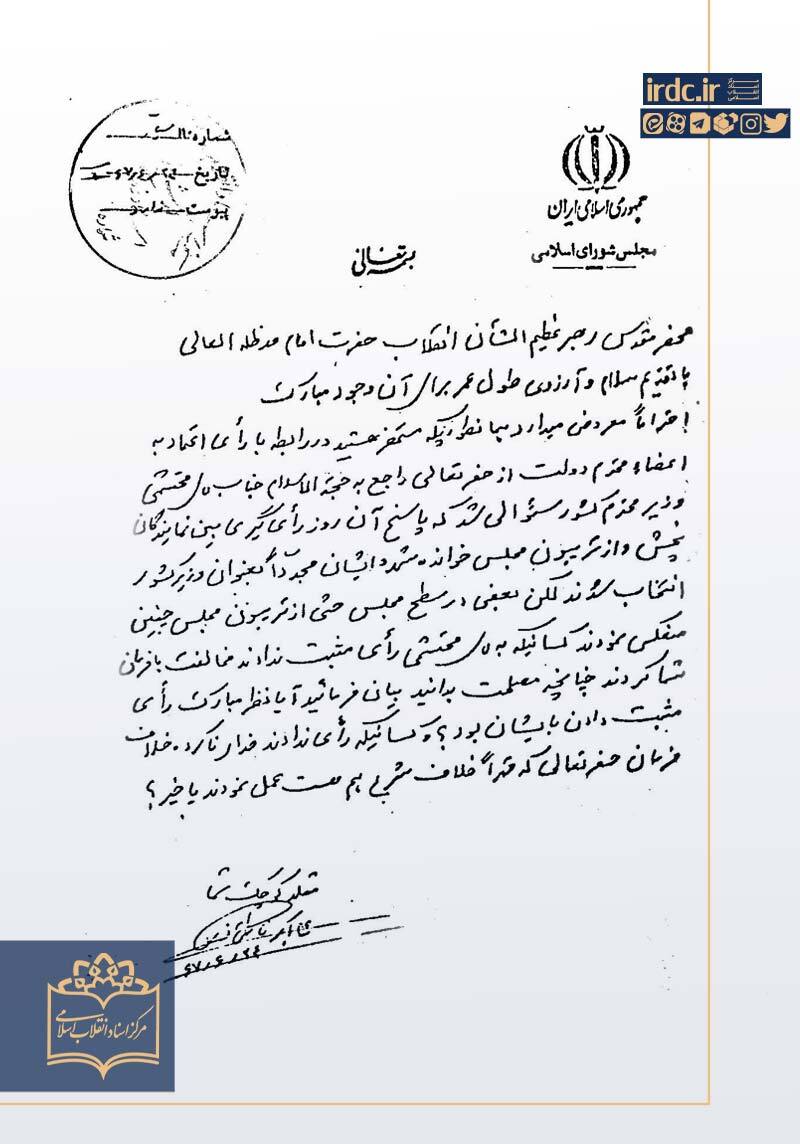 irdc.ir
مرکز اسناد انقلاب اسلامی
شماره
تاریخ ۶۷/۶/۲۴
پیوست ندارد
جمهوری اسلامی ایران
مجلس شورای اسلامی
بسمه تعالی
محضر مقدس رهبر عظیم الشأن انقلاب حضرت امام مدظله العالی
با تقدیم سلام و آرزوی طول عمر برای آن وجود مبارک
احتراماً معروض میدارد همانطوریکه مستحضر هستید در رابطه با رأی اعتماد به
اعضاء محترم دولت از حضرتعالی راجع به حجة الاسلام جناب آقای محتشمی
وزیر محترم کشور سئوالی شد که پاسخ آن روز رأی گیری بین نمایندگان
پخش و از تریبون مجلس خوانده شد و ایشان مجدداً بعنوان وزیر کشور
انتخاب شدند لکن بعضی در سطح مجلس حتی از تریبون مجلس چنین
منعکس نمودند کسانیکه به آقای محتشمی رأی مثبت ندادند مخالفت با فرمان
شما کردند چنانچه مصلحت بدانید بیان فرمائید آیا نظر مبارک رأی
مثبت دادن بایشان بود؟ و کسانیکه رأی ندادند خدای ناکرده خلاف
فرمان حضرتعالی که قهراً خلاف شرع هم هست عمل نمودند یا خیر؟
مقلد کوچک شما
اکبر
۶۷/۶/۲۴
مرکز اسناد انقلاب اسلامی